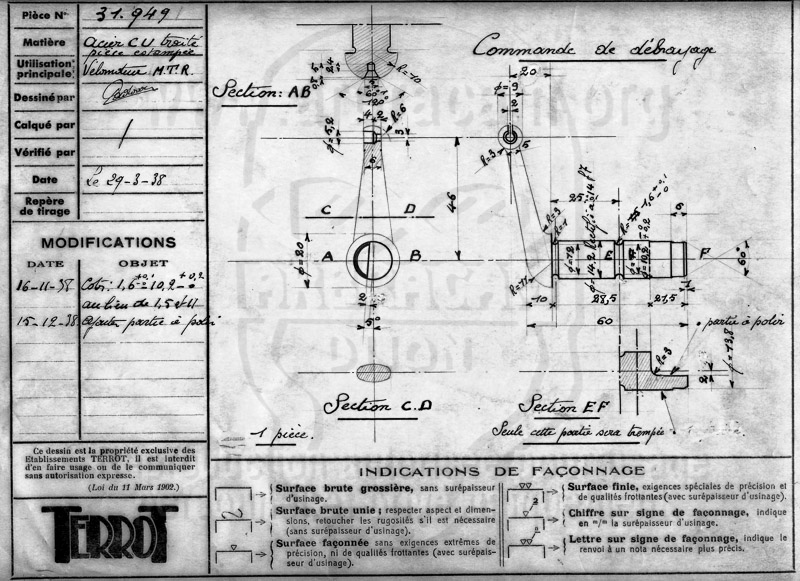 Pièce N° 31.949
Matière Acier CU traité
pièce estampée
Utilisation principale: Vélomoteur M.T.R.
Dessiné par
Calqué par
Vérifié par
Date Le 29-3-38
Repère de tirage
MODIFICATIONS
DATE OBJET
16-11-38 Cote: 1,6 +0,1 10,2 +0,2 -0
au lieu de 1,5 et 11
15-12-38 Ajouter partie à polir
Ce dessin est la propriété exclusive des
Etablissements TERROT. Il est interdit
d'en faire usage ou de le communiquer
sans autorisation expresse.
(Loi du 11 Mars 1902.)
TERROT
Commande de débrayage
Section: AB
R=10
60°
120°
4 2
R=6
φ=5,2
3
5
C D
φ=20
A B
12
5°
Section C.D
1 pièce.
20
φ=9
2
R=3
5
46
25
R=3
φ=14.2 Rectifié à 14 f7
1,6 +0,1
6
φ=12
E
10,2 +0,2 -0
F
60°
R=11
1
10
28,5
21,5
60
partie à polir
R=3
φ=13,8
2
Section EF
Seule cette partie sera trempée
INDICATIONS DE FAÇONNAGE
Surface brute grossière, sans surépaisseur
d'usinage.
Surface brute unie; respecter aspect et dimen-
sions, retoucher les rugosités s'il est nécessaire
(sans surépaisseur d'usinage).
Surface façonnée sans exigences extrêmes de
précision, ni de qualités frottantes (avec surépais-
seur d'usinage).
Surface finie, exigences spéciales de précision et
de qualités frottantes (avec surépaisseur d'usinage).
Chiffre sur signe de façonnage, indique
en m/m la surépaisseur d'usinage.
Lettre sur signe de façonnage, indique le
renvoi à un nota nécessaire plus précis.